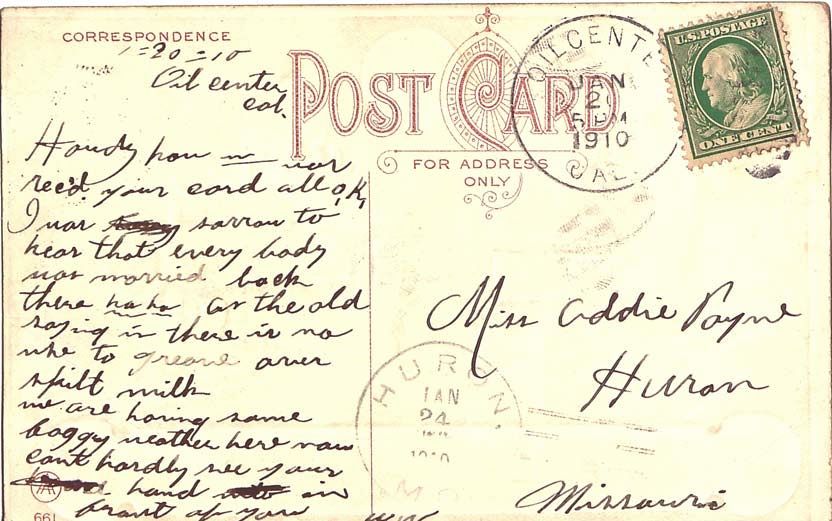 CORRESPONDENCE
1-20-10
Oil center
Cal.
POST CARD
FOR ADDRESS
ONLY
OILCENTE
JAN
5 PM
1910
CAL.
U.S. POSTAGE
ONE CENT
Howdy how
rec'd your card all O,K,
I was sorrow to
hear that every body
was married back
there ha ha as the old
saying is there is no
use to greave over
spilt milk
we are having some
foggy weather here now
cant hardly see your
hand in
front of you
661
Miss Addie Payne
Huron
Missouri
HURON.
JAN
24
MO